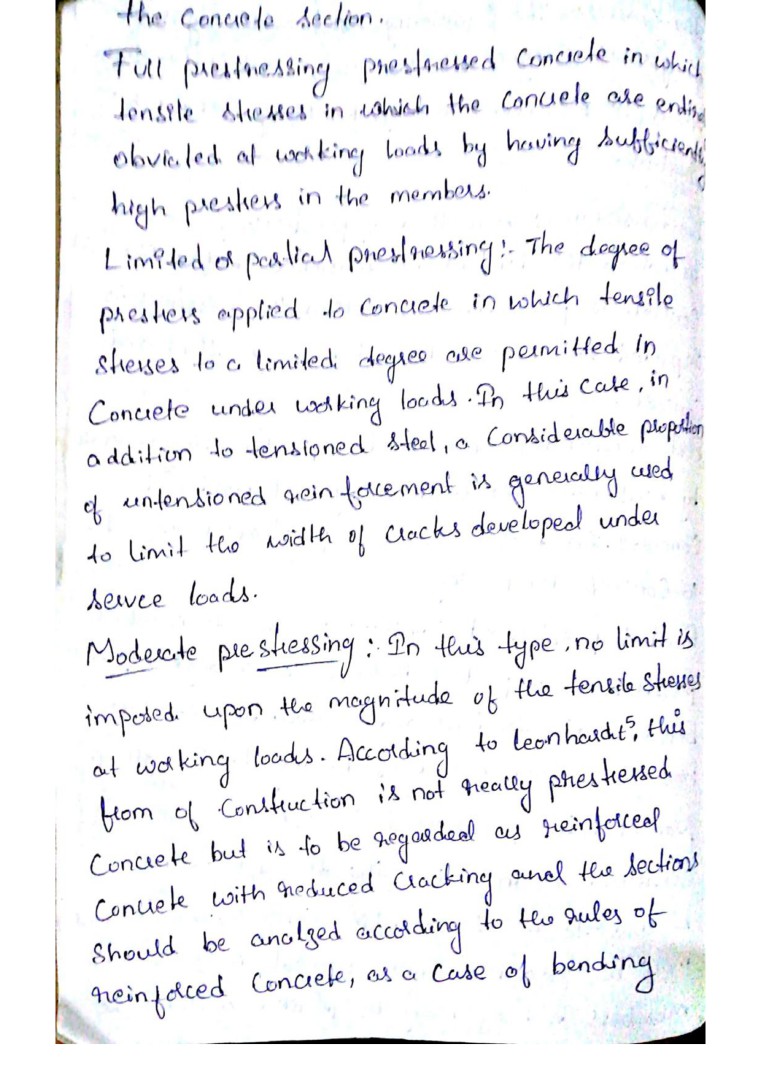 the Concrete section.
Full prestressing prestressed Concrete in which
tensile stresses in which the Concrete are entire
obviated at working loads by having sufficiently
high prestress in the members.
Limited or partial prestressing :- The degree of
prestress applied to Concrete in which tensile
stresses to a limited degree are permitted in
Concrete under working loads. In this Case, in
addition to tensioned steel, a Considerable proportion
of untensioned reinforcement is generally used
to limit the width of Cracks developed under
servce loads.
Moderate prestressing : In this type, no limit is
imposed upon the magnitude of the tensile stresses
at working loads. According to leonhardt5, this
from of Construction is not really prestressed
Concrete but is to be regarded as reinforced
Concrete with reduced Cracking and the sections
should be analzed according to the rules of
reinforced Concrete, as a Case of bending